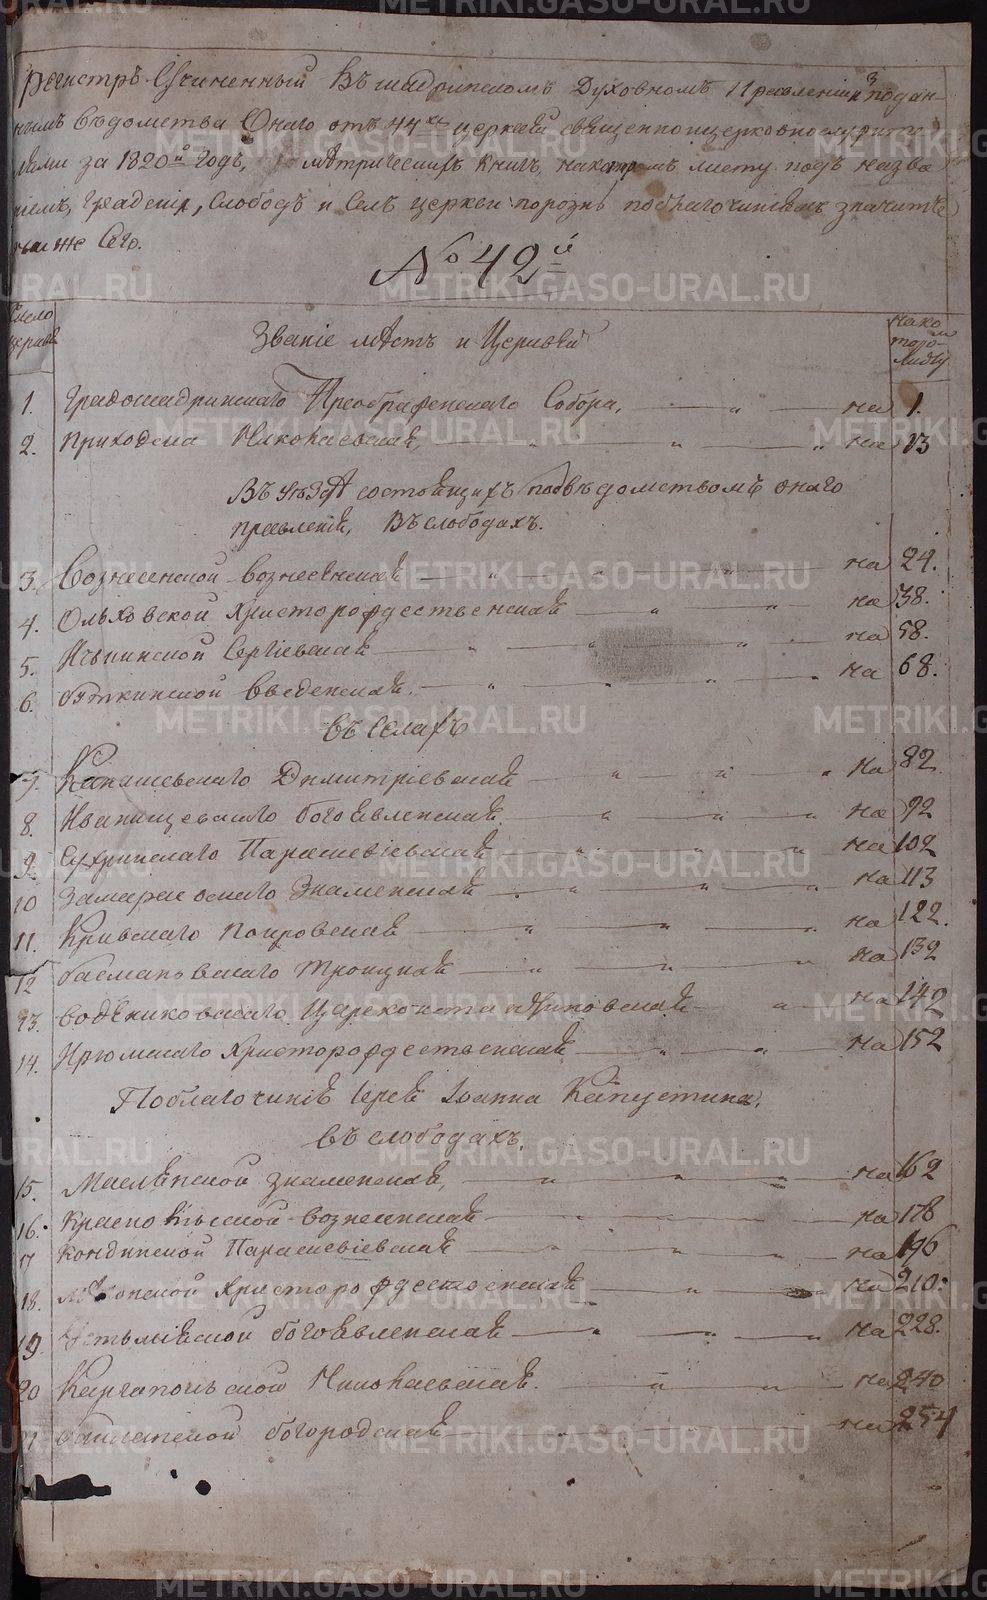 Регистръ Учиненный въ шадринскомъ Духовномъ Правленіи з подан-
ныхъ ведомства Онаго отъ 44хъ церквей священноицерковнослужите
лями за 1820й Годъ, метрическихъ книгъ, накоторомъ листу подъ назва
ніемъ, Градскихъ, Слободъ и Селъ церкви порознь поблагочиніямъ значитъ
ниже Сего.
№ 42й
Число церквей
Званіе мѣстъ и Церквей
На котором листу
1. Градошадринскаго Преображенскаго Собора, — на 1.
2. Приходская Николаевская, — на 13
Въ уѣздѣ состоящихъ подвѣдомствомъ онаго
правленія, Въ слободахъ.
3. Вознесенской - вознесенская — на 24.
4. Ольховской Христорождественская — на 38.
5. Ичкинской Сергіевская — на 58.
6. Буткинской введенская. — на 68.
въ Селахъ
7. Канашевскаго Димитріевская — на 82.
8. Иванищевскаго богоявленская — на 92
9. Сухринскаго Параскевіевская — на 102
10 Замараевскаго Знаменская — на 113
11. Кривскаго Покровская — на 122.
12 басмановскаго троицкая — на 132
13. водениковскаго Цареконстантиновская — на 142
14. Ирюмскаго Христорождественская — на 152
Поблагочинію Іерея Іоанна Капустина,
въ слободахъ.
15. Маслянской знаменская, — на 162
16. Красномысской - вознесенская — на 178
17 Кондинской Параскевіевская — на 196
18. Христорождественская — на 210.
19. Устьміяской богоявленская — на 228.
20 Каргапольской Николаевская. — на 240
21. баклапской богородская — на 254
METRIKI.GASO-URAL.RU